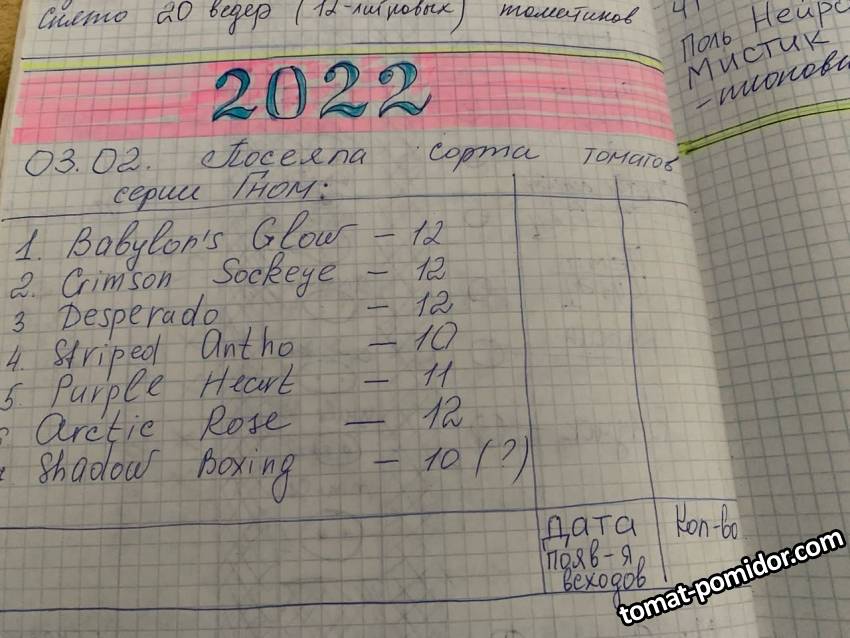 Снято 20 ведер (12-литровых) томатинов
2022
03.02. Посеяла сорта томатов
серии Гном:
1. Babylon's Glow – 12
2. Crimson Sockeye – 12
3 Desperado – 12
4. Striped Antho – 10
5. Purple Heart – 11
Arctic Rose — 12
Shadow Boxing – 10 (?)
Дата
появ-я
всходов
Кол-во
Поль Нейро
Мистик
- пионови
tomat-pomidor.com